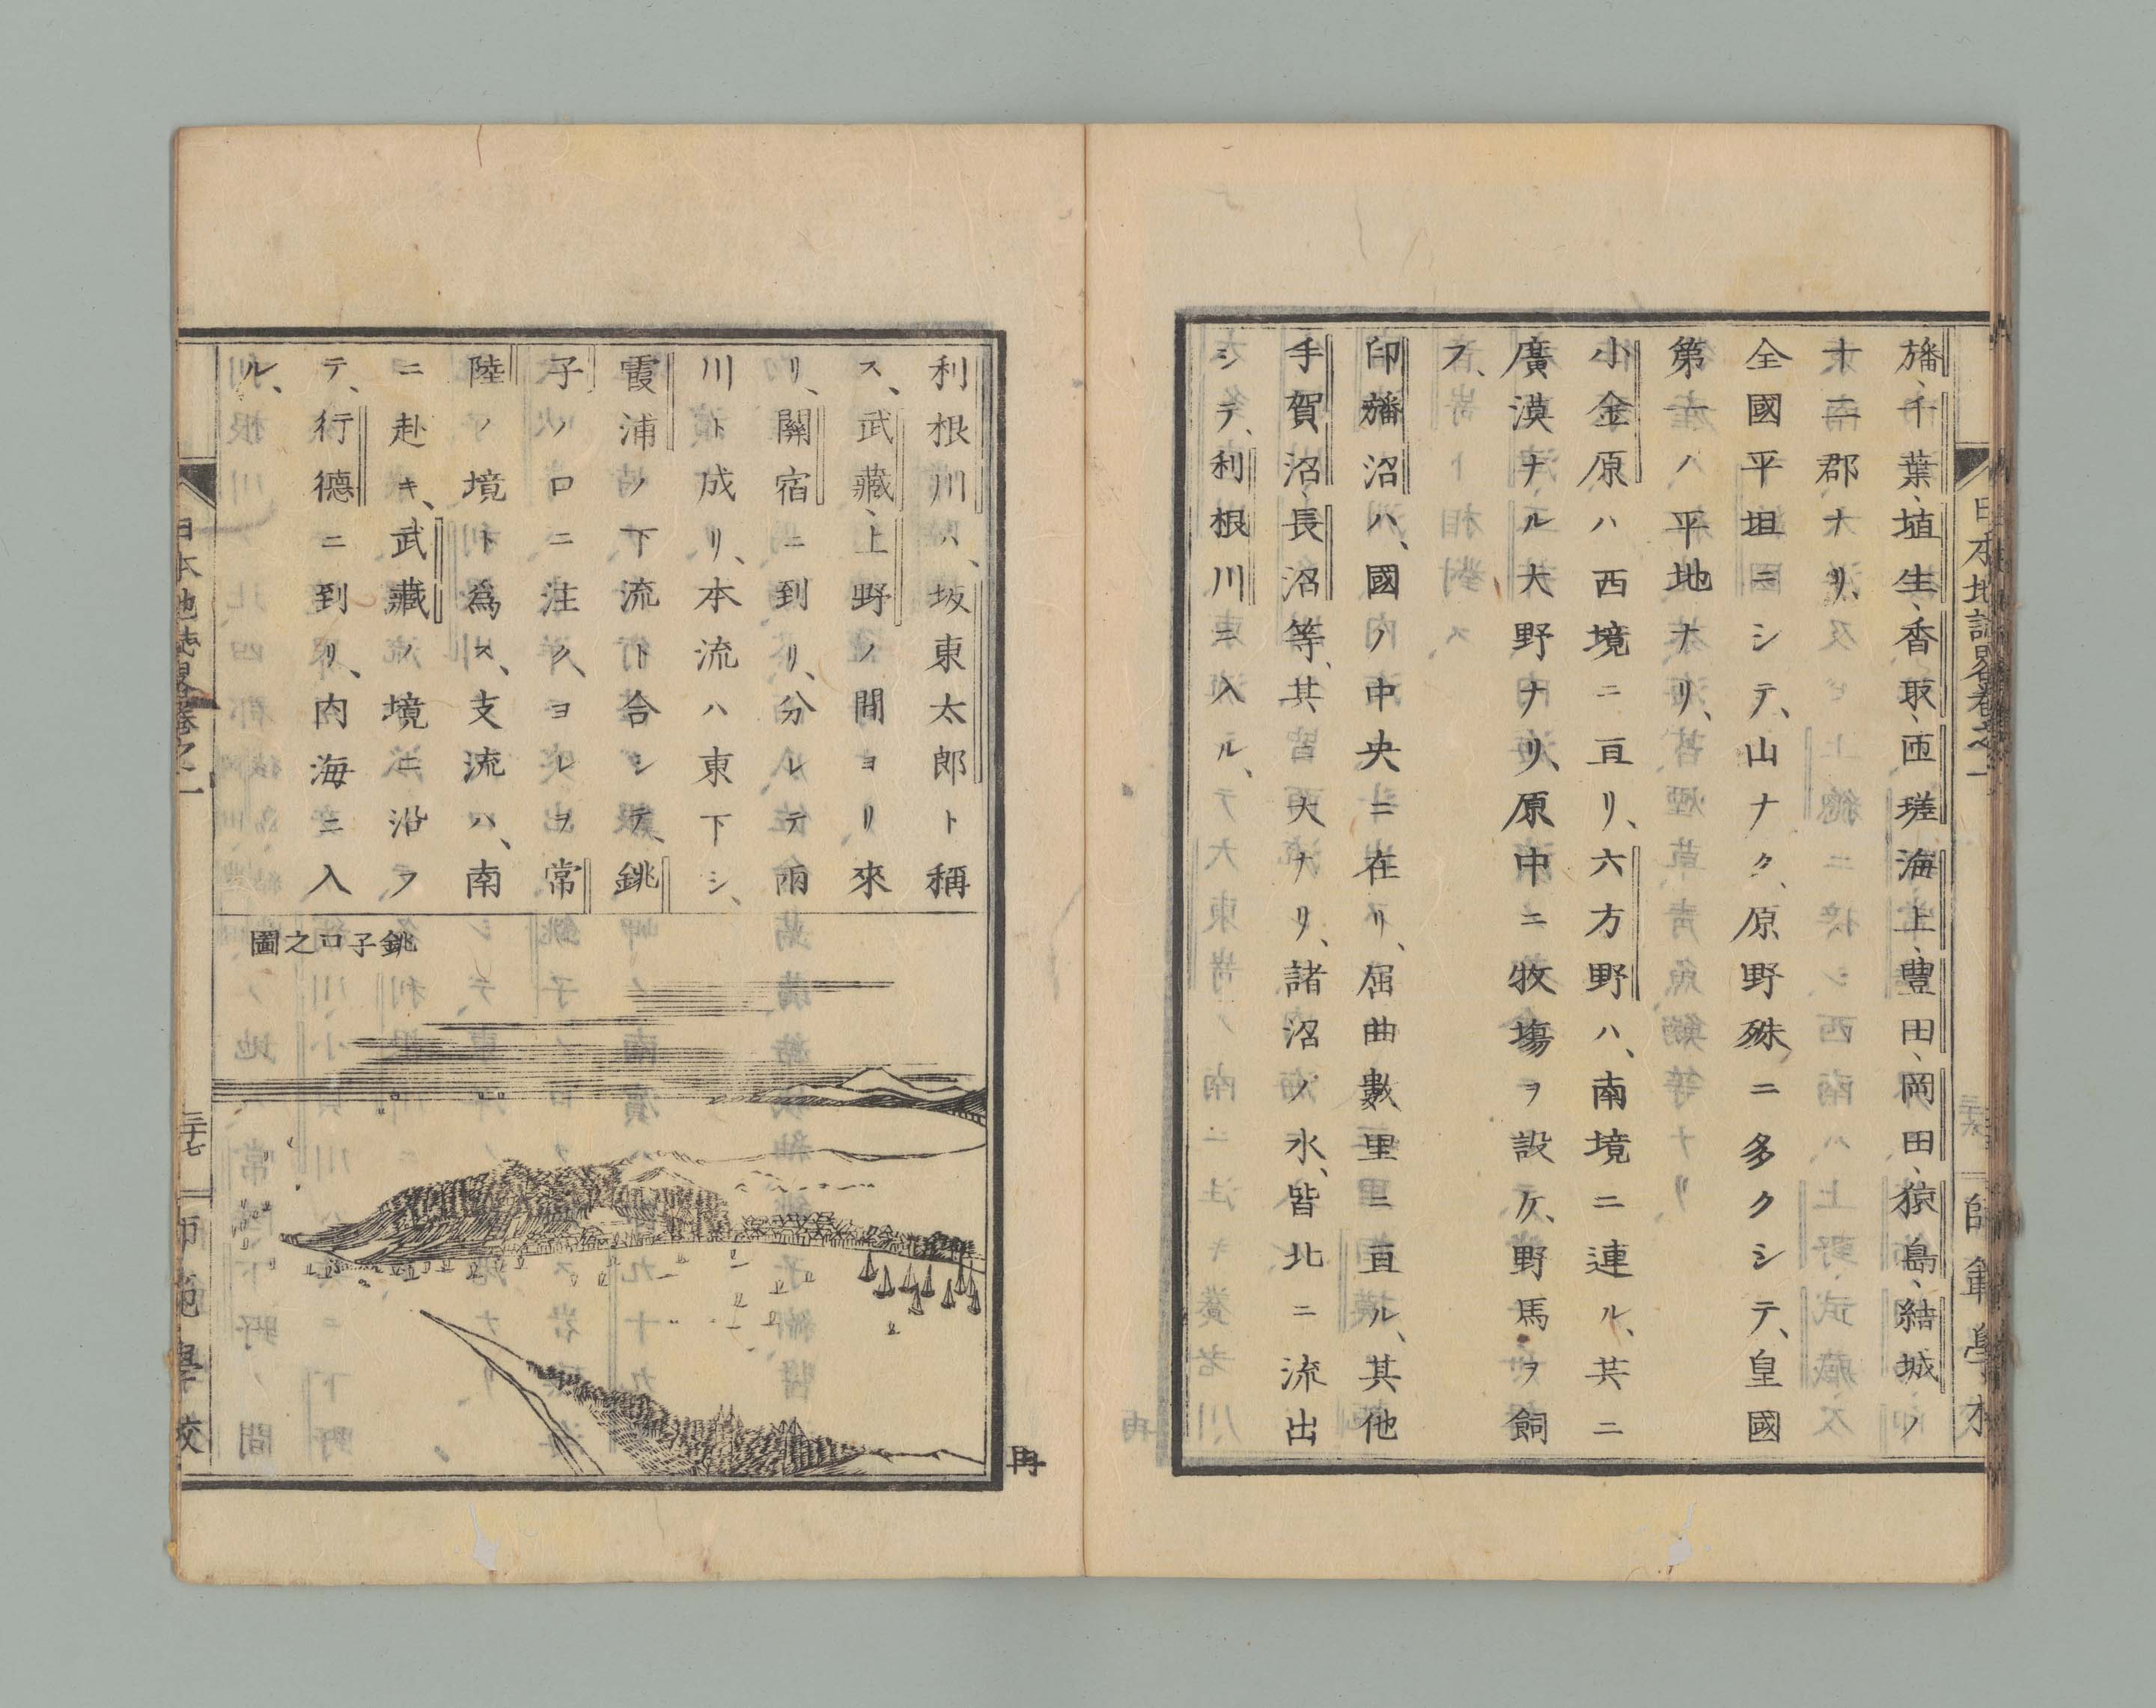 旛、千葉、埴生、香取、匝瑳、海上、豊田、岡田、猿島、結城ノ
十二郡ナリ、
全國平坦ニシテ、山ナク、原野殊ニ多クシテ、皇國
第一ノ平地ナリ、
小金原ハ西境ニ亘リ、六方野ハ、南境ニ連ル、共ニ
廣漠ナル大野ナリ、原中ニ牧塲ヲ設ケ、野馬ヲ飼
フ、
印旛沼ハ、國ノ中央ニ在リ、屈曲數里ニ亘ル、其他
手賀沼、長沼等、其大ナリ、諸沼ノ水、皆北ニ流出
シテ、利根川ニ入ル、
日本地誌略卷之一
師範學校
利根川ハ、坂東太郎ト稱
ス、武藏、上野ノ間ヨリ來
リ、關宿ニ到リ、分レテ兩
川ト成リ、本流ハ東下シ、
霞浦ノ下流ト合シテ、銚
子ノ口ニ注ク、ヨレヲ常
陸ノ境ト為ス、支流ハ、南
ニ赴キ、武藏ノ境ニ沿ヲ
テ、行德ニ到リ、内海ニ入
ル、
銚子口之圖
日本地誌略卷之一
三十七
師範學校